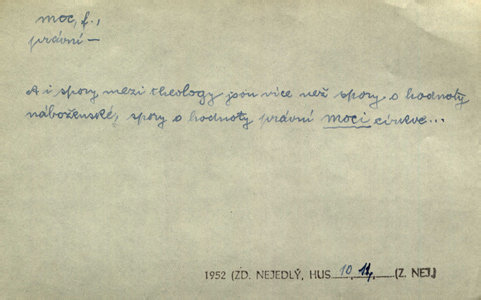 moc, f.,
právní —
A i spory mezi theology jsou více než spory o hodnoty
náboženské, spory o hodnoty právní moci církve...
1952 (ZD. NEJEDLÝ, HUS 10, 11, (Z. NEJ.)